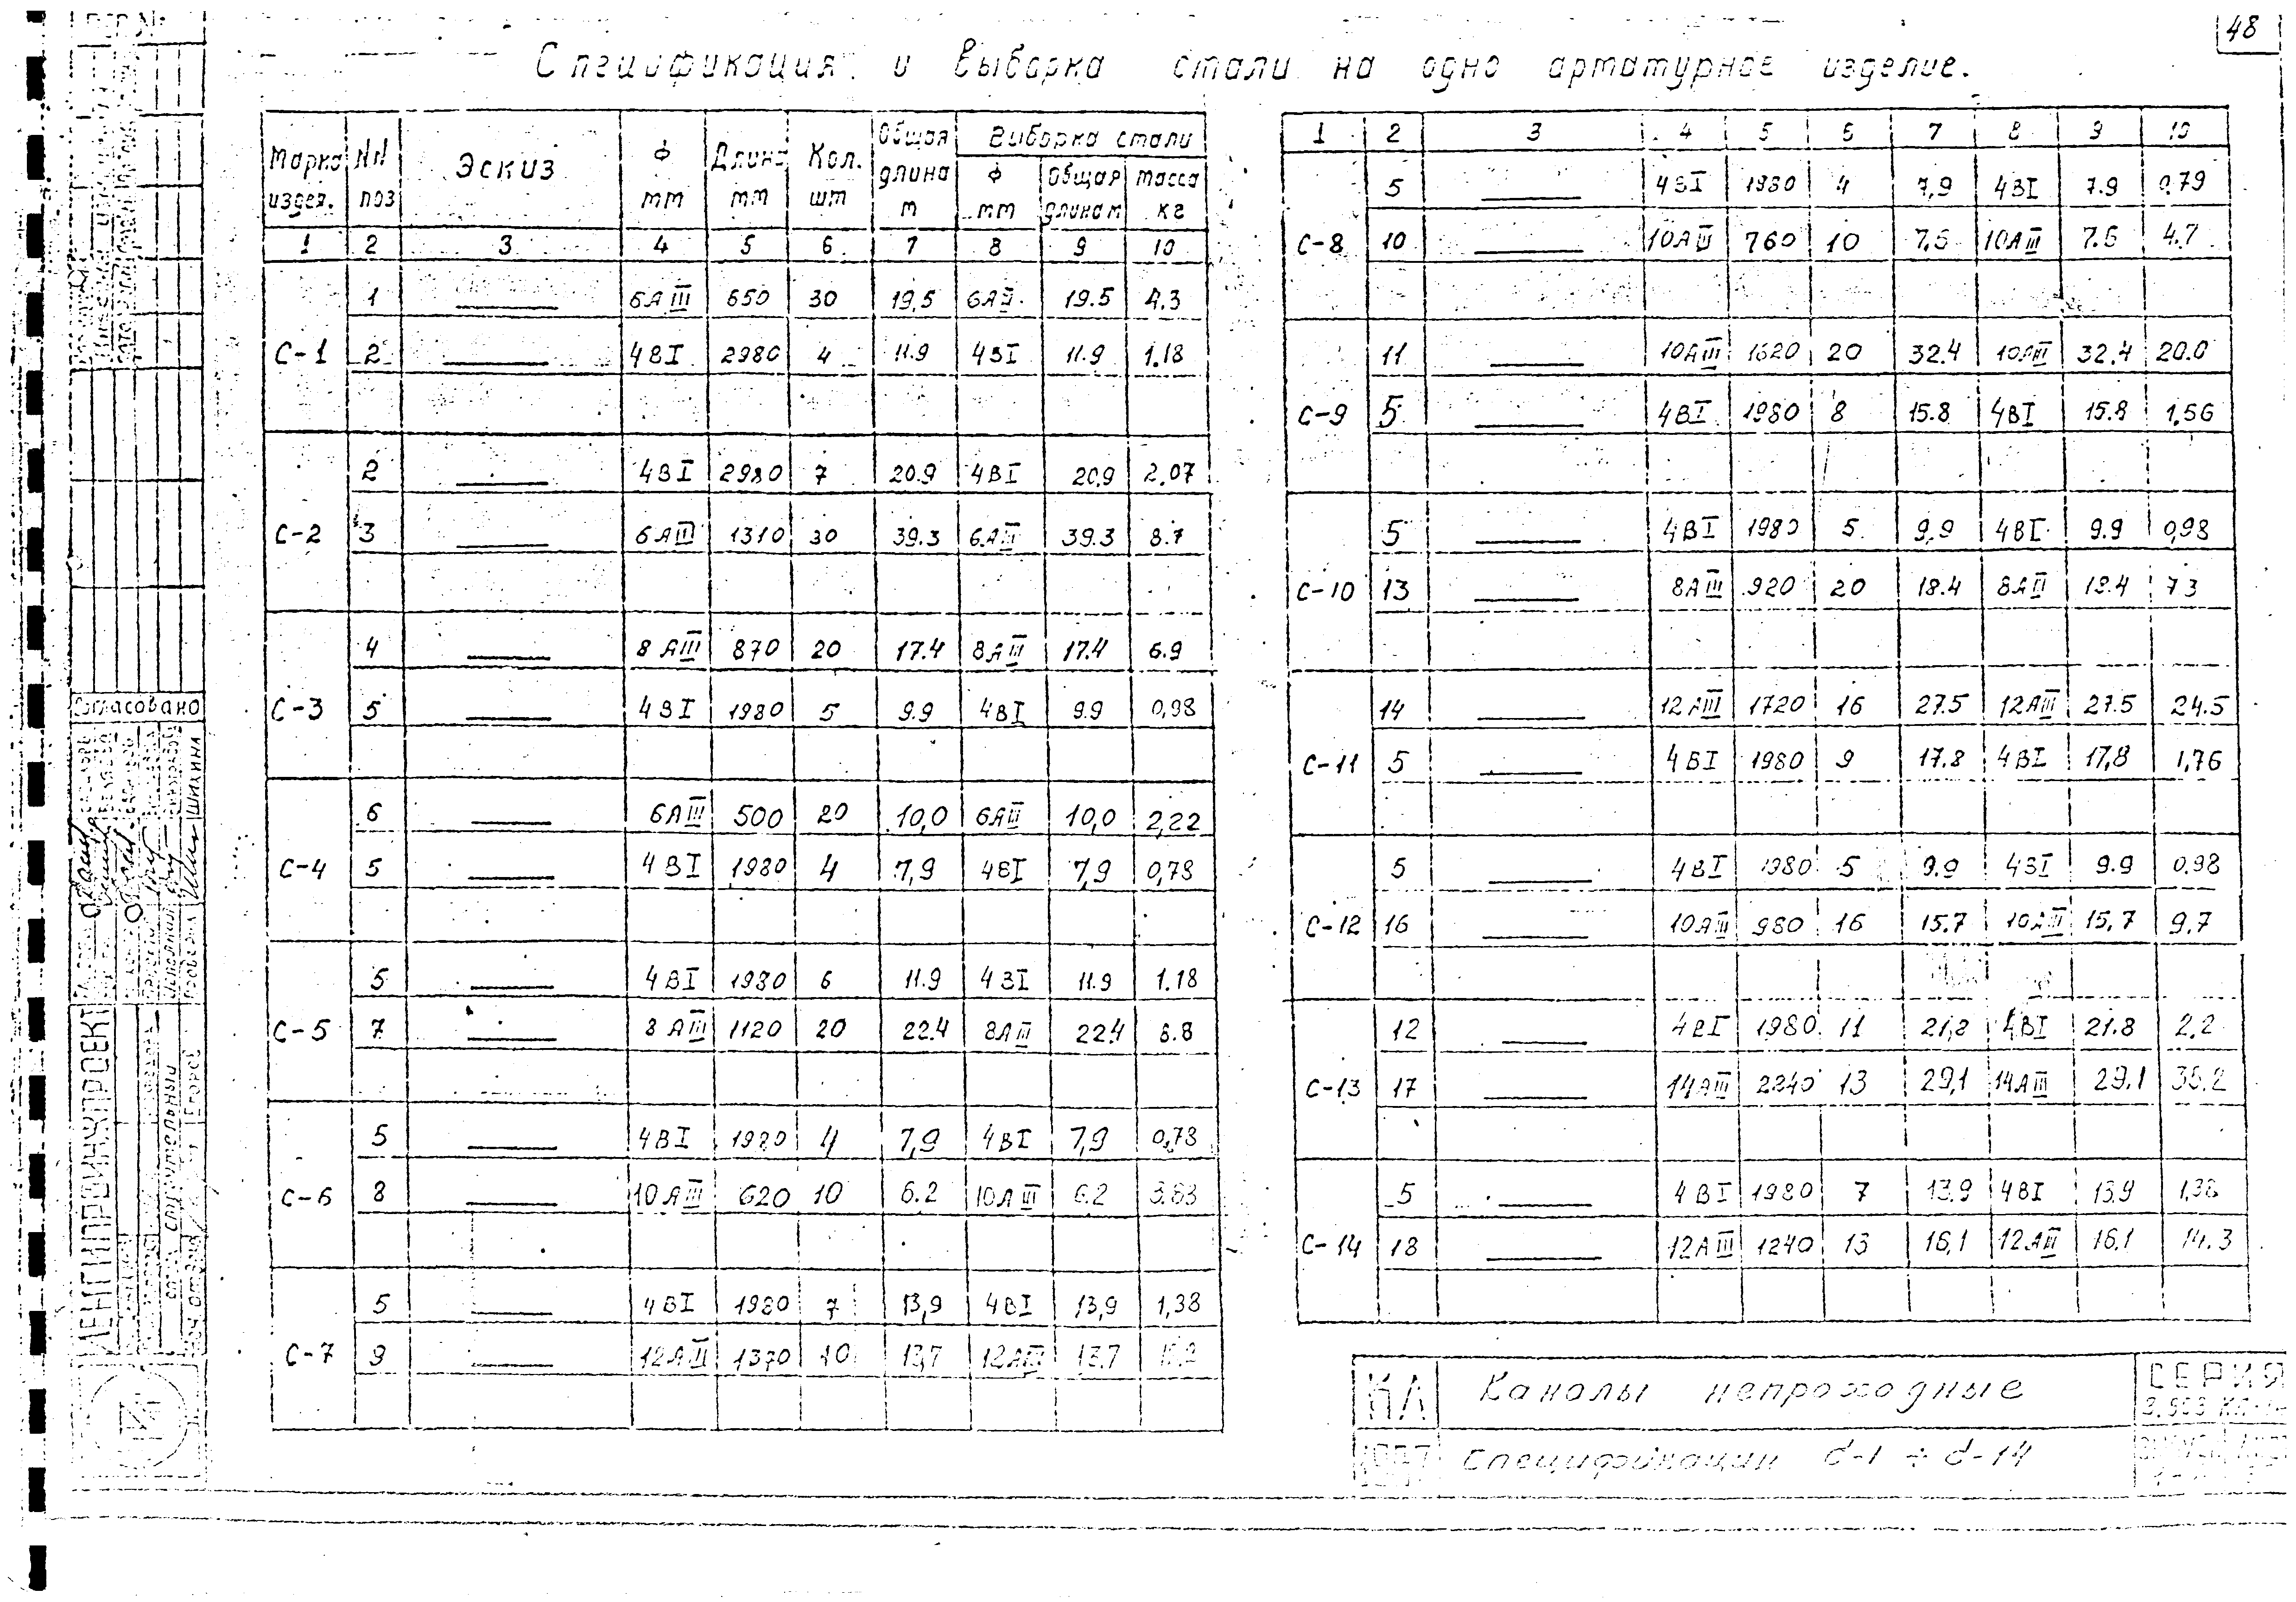 48
Спецификация и выборка стали на одно арматурное изделие.
Марка издел. NN поз Эскиз Ф мм Длина мм Кол. шт Общая длина м Выборка стали Ф мм Общая длина м Масса кг
1 2 3 4 5 6 7 8 9 10
1 6АIII 650 30 19,5 6АIII 19.5 4.3
С-1 2 4ВI 2980 4 11.9 4ВI 11.9 1.18
2 4ВI 2980 7 20.9 4ВI 20,9 2,07
С-2 3 6АIII 1310 30 39.3 6АIII 39.3 8.7
4 8АIII 870 20 17.4 8АIII 17.4 6.9
С-3 5 4ВI 1980 5 9.9 4ВI 9.9 0,98
6 6АIII 500 20 10,0 6АIII 10,0 2,22
С-4 5 4ВI 1980 4 7,9 4ВI 7,9 0,78
5 4ВI 1980 6 11.9 4ВI 11.9 1.18
С-5 7 8АIII 1120 20 22.4 8АIII 22.4 8.8
5 4ВI 1980 4 7,9 4ВI 7,9 0,78
С-6 8 10АIII 620 10 6.2 10АIII 6.2 3.83
5 4ВI 1980 7 13,9 4ВI 13,9 1,38
С-7 9 12АIII 1370 10 13,7 12АIII 13.7
1 2 3 4 5 6 7 8 9 10
5 4ВI 1980 4 7,9 4ВI 7.9 0,79
С-8 10 10АIII 760 10 7,6 10АIII 7.6 4.7
11 10АIII 1620 20 32.4 10АIII 32.4 20.0
С-9 5 4ВI 1980 8 15.8 4ВI 15.8 1,56
5 4ВI 1980 5 9,9 4ВI 9.9 0,98
С-10 13 8АIII 920 20 18.4 8АIII 18.4 7.3
14 12АIII 1720 16 27.5 12АIII 27.5 24.5
С-11 5 4ВI 1980 9 17.8 4ВI 17,8 1,76
5 4ВI 1980 5 9.9 4ВI 9.9 0,98
С-12 16 10АIII 980 16 15.7 10АIII 15,7 9.7
12 4ВI 1980 11 21,8 4ВI 21.8 2,2
С-13 17 14АIII 2240 13 29,1 14АIII 29.1 35.2
5 4ВI 1980 7 13,9 4ВI 13,9 1,38
С-14 18 12АIII 1240 13 16,1 12АIII 16,1 14.3
КЛ Каналы непроходные СЕРИЯ
Спецификации С-1 ÷ С-14
Согласовано
ЛЕНГИПРОИНЖПРОЕКТ
Шихина